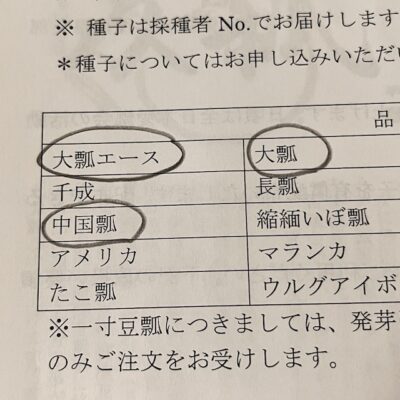 ※ 種子は採種者 No.でお届けします
＊種子についてはお申し込みいただい
品
大瓢エース 大瓢
千成 長瓢
中国瓢 縮緬いぼ瓢
アメリカ マランカ
たこ瓢 ウルグアイボ
※一寸豆瓢につきましては、発芽
のみご注文をお受けします。